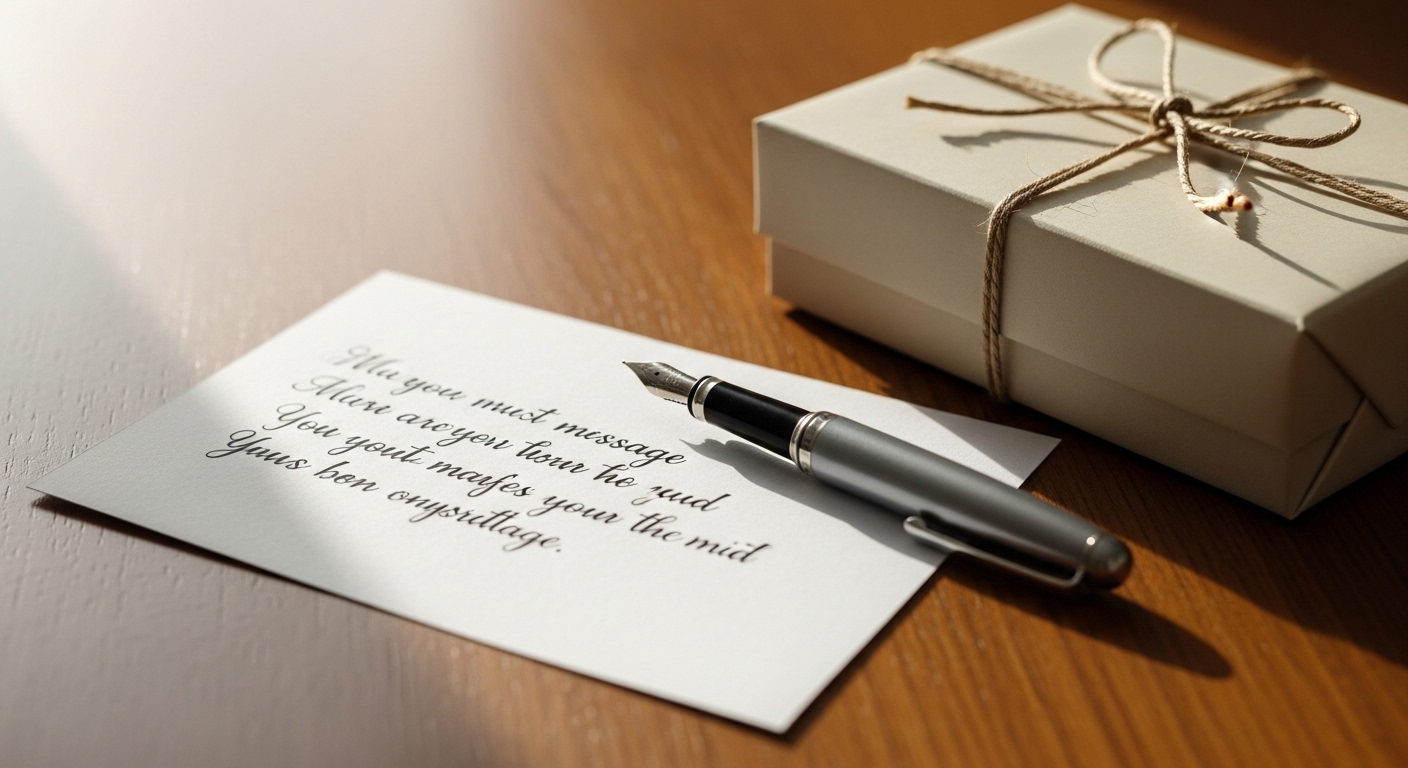 Ma you must message
Alwn are you hour he yud
You yout mayfes your the mid
Yuus bon onysrittage.